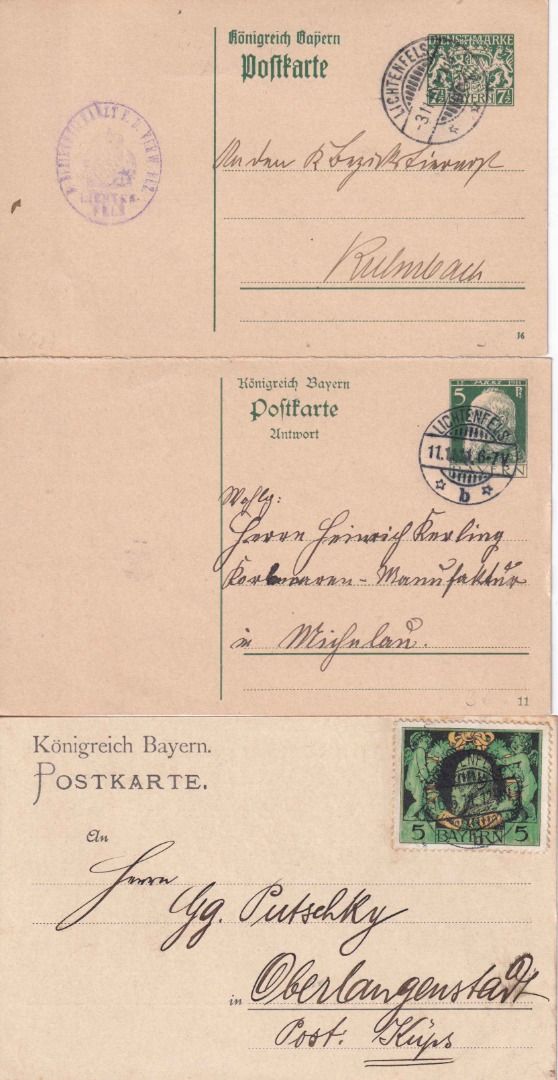 Königreich Bayern
Postkarte
DIENSTMARKE
7½ BAYERN 7½
LICHTENFELS
-3.11.
LICHTEN-
FELS
An den K. Bezirkstierarzt
Kulmbach
16
Königreich Bayern
Postkarte
Antwort
12 MÄRZ 1911
5 Pf
BAYERN
LICHTENFELS
6-7V.
b
Wohlg:
Herrn Heinrich Kerling
Korbwaren-Manufaktur
in Michelau.
11
Königreich Bayern.
POSTKARTE.
5 BAYERN 5
An
Herrn
Gg. Putschky
in Oberlangenstadt
Post. Küps